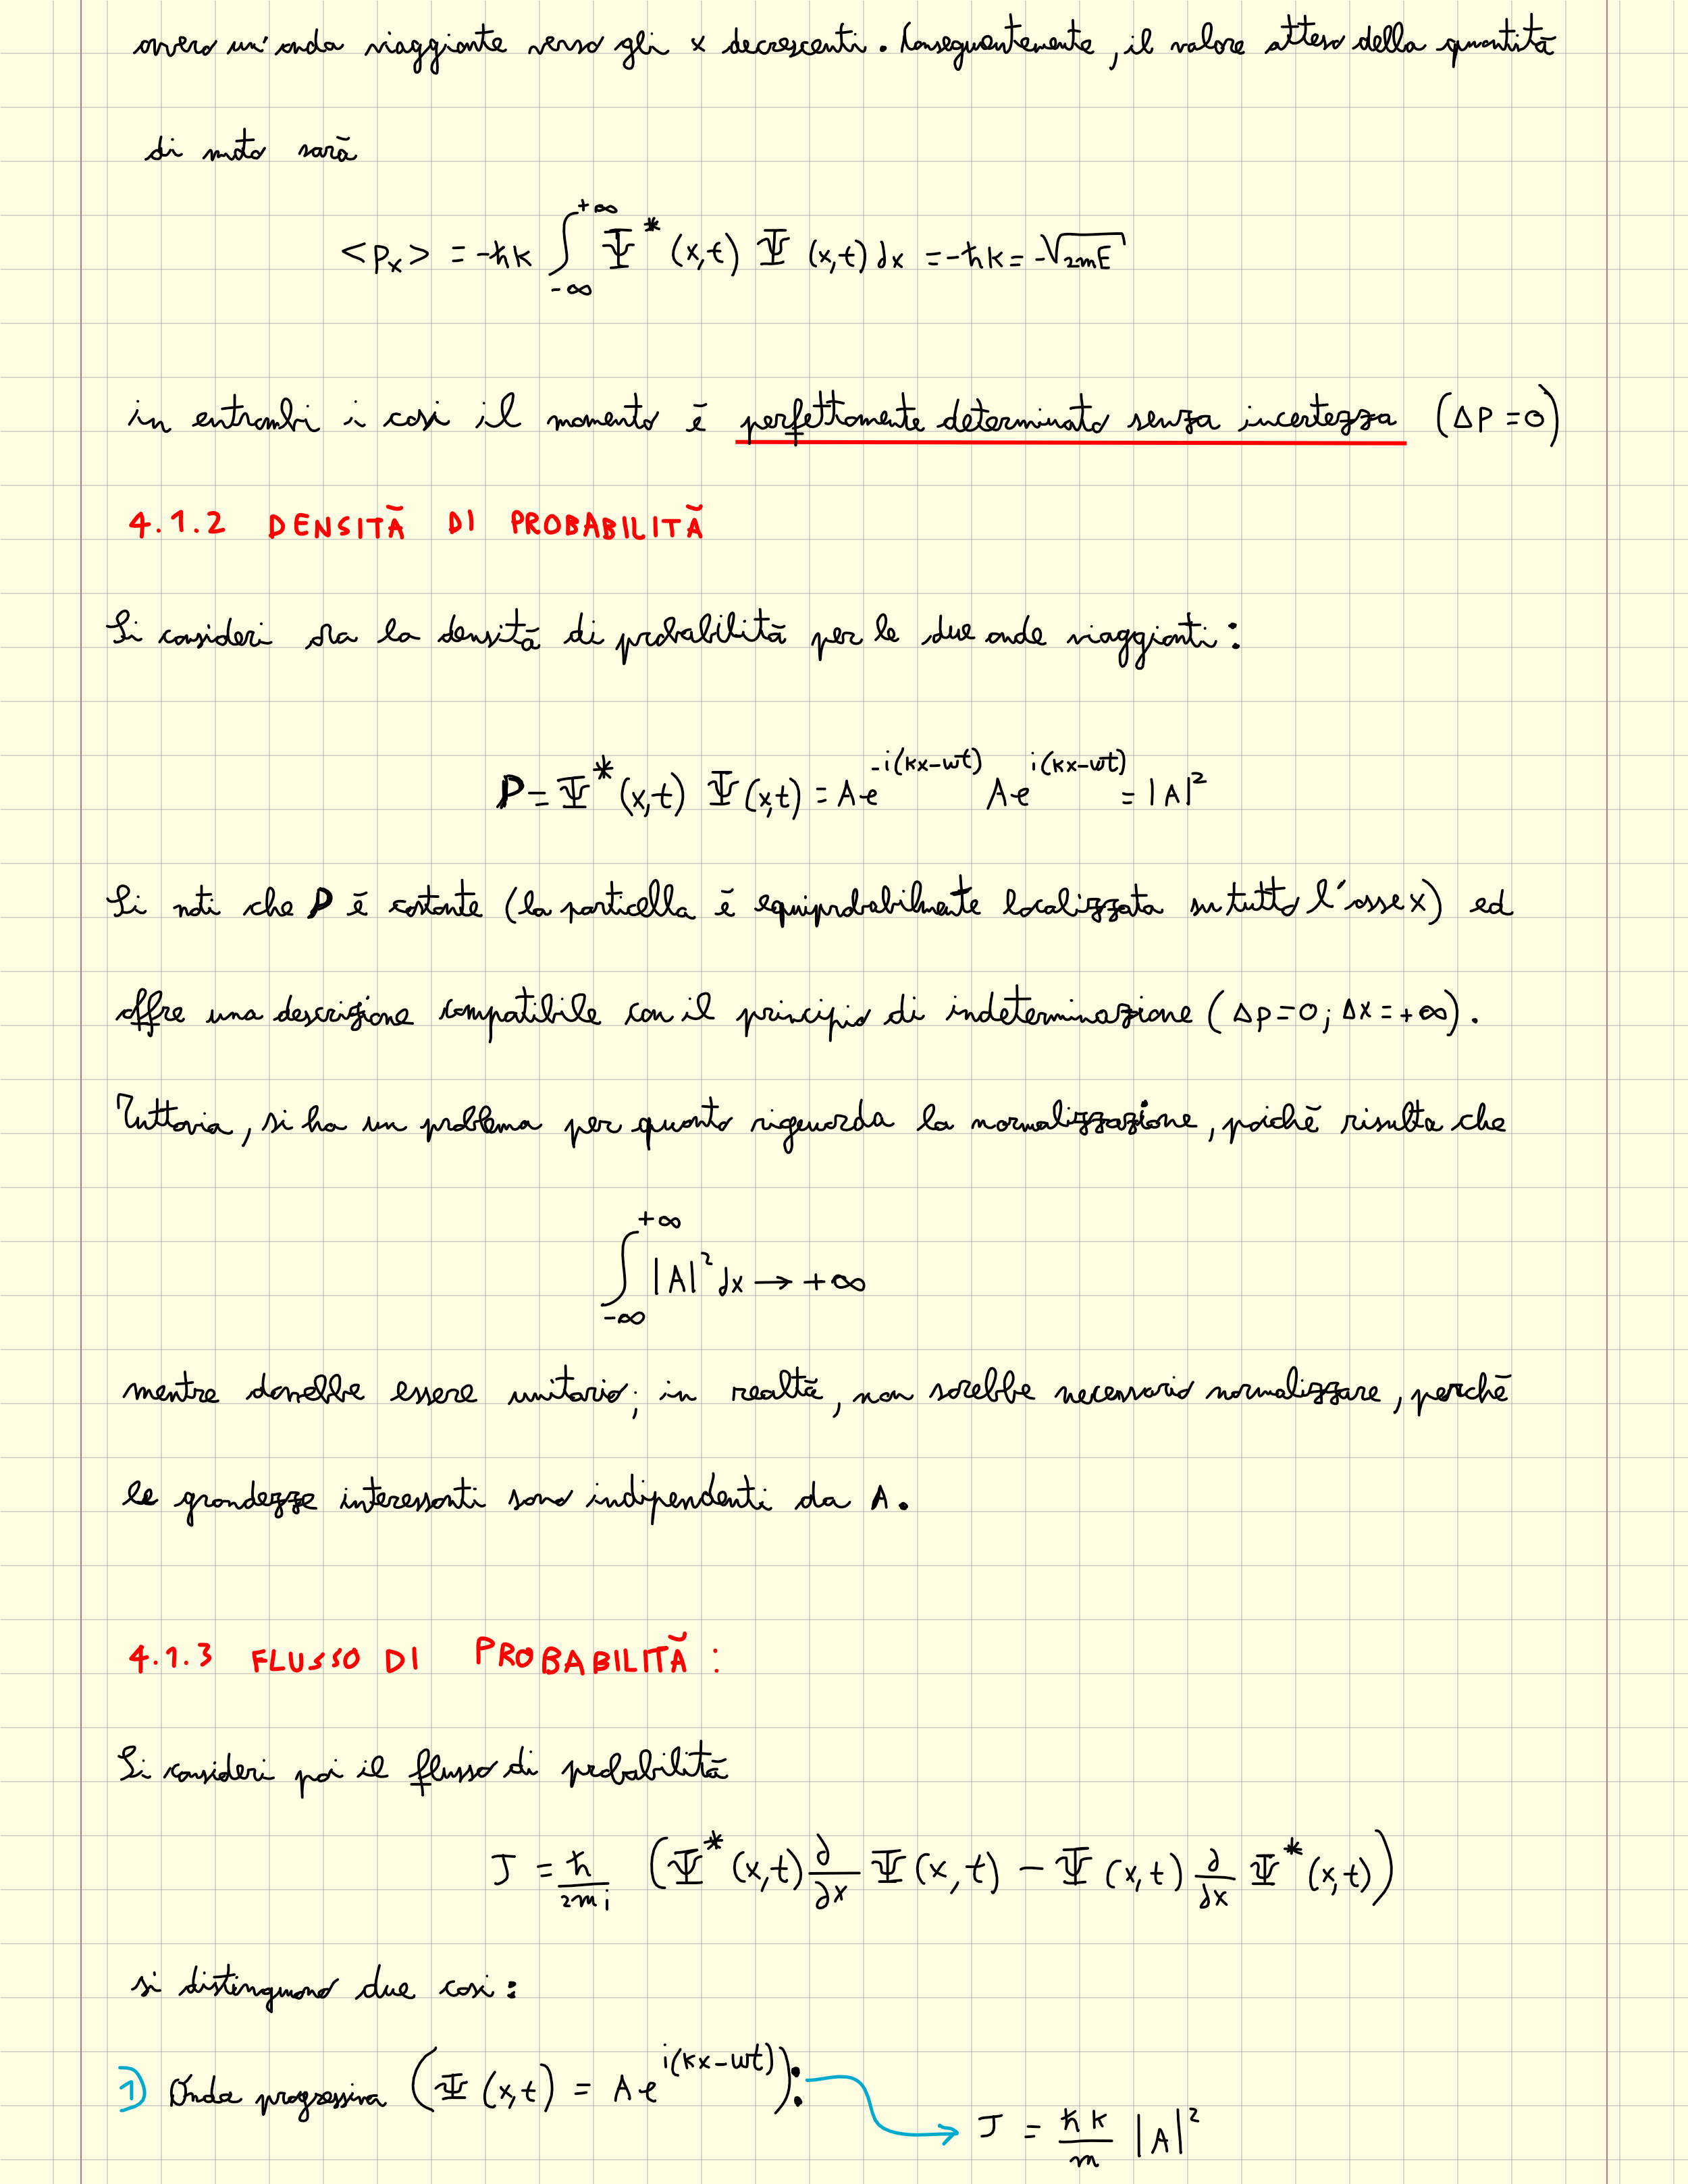 ovvero un'onda viaggiante verso gli x decrescenti. Conseguentemente, il valore atteso della quantità
di moto sarà
<Px> = -ħk ∫_{-∞}^{+∞} Ψ*(x,t) Ψ(x,t) dx = -ħk = -√2mE
in entrambi i casi il momento è perfettamente determinato senza incertezza (ΔP=0)
4.1.2 DENSITÀ DI PROBABILITÀ
Si consideri ora la densità di probabilità per le due onde viaggianti:
P = Ψ*(x,t) Ψ(x,t) = A e^{-i(kx-wt)} A e^{i(kx-wt)} = |A|²
Si noti che P è costante (la particella è equiprobabilmente localizzata su tutto l'asse x) ed
offre una descrizione compatibile con il principio di indeterminazione (Δp=0; Δx=+∞).
Tuttavia, si ha un problema per quanto riguarda la normalizzazione, poichè risulta che
∫_{-∞}^{+∞} |A|² dx → +∞
mentre dovrebbe essere unitario; in realtà, non sarebbe necessario normalizzare, perchè
le grandezze interessanti sono indipendenti da A.
4.1.3 FLUSSO DI PROBABILITÀ:
Si consideri poi il flusso di probabilità
J = ħ/2mi (Ψ*(x,t) ∂/∂x Ψ(x,t) - Ψ(x,t) ∂/∂x Ψ*(x,t))
si distinguono due casi:
1) Onda progressiva (Ψ(x,t) = A e^{i(kx-wt)}):
J = ħk/m |A|²